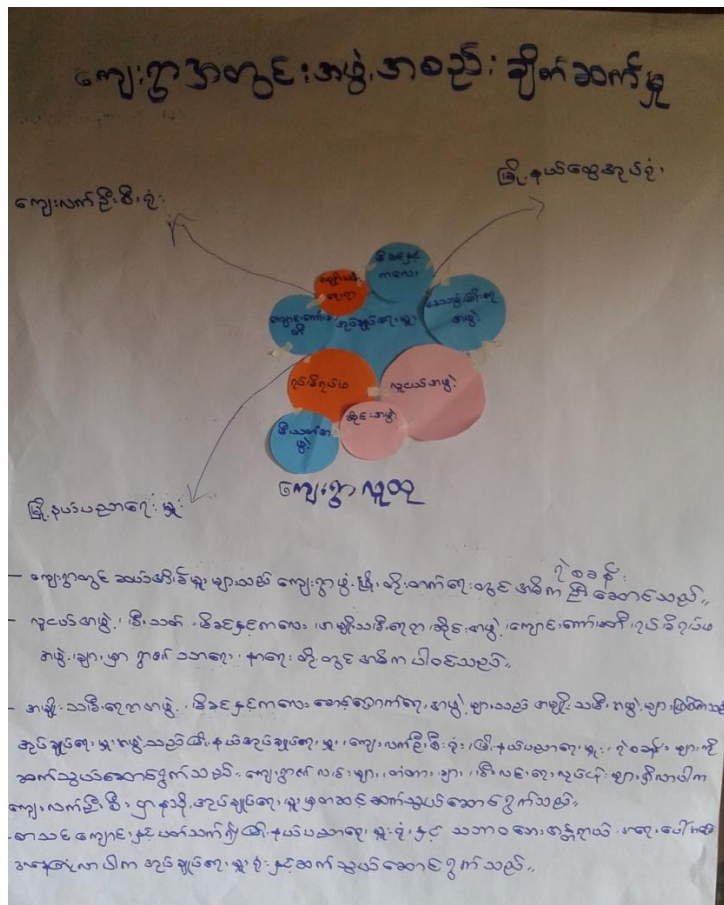 ကျေးရွာအတွင်းအဖွဲ့အစည်းချိတ်ဆက်မှု
မြို့နယ်ထွေအုပ်ရုံး
ကျေးလက်ဦးစီးရုံး
မိခင်နှင့်
ကလေး
အုပ်ချုပ်ရေးမှူး
အဖွဲ့
ရပ်မိရပ်ဖ
လူငယ်အဖွဲ့
ဆိုင်းအဖွဲ့
မီးသတ်အ
ဖွဲ့
ကျေးရွာလူထု
မြို့နယ်ပညာရေးမှူး
ရဲစခန်း
- ကျေးရွာတွင် ဆယ်အိမ်မှူးများသည် ကျေးရွာဖွံ့ဖြိုးတိုးတက်ရေးတွင် အဓိက ဦးဆောင်သည်။
- လူငယ်အဖွဲ့၊ မီးသတ်၊ မိခင်နှင့်ကလေး၊ အမျိုးသမီးရေးရာ၊ ဆိုင်းအဖွဲ့၊ ကျောင်းကော်မတီ၊ ရပ်မိရပ်ဖ
အဖွဲ့များမှာ ရွာ၏ သာရေး၊ နာရေးတို့တွင် အဓိကပါဝင်သည်။
- အမျိုးသမီးရေးရာအဖွဲ့၊ မိခင်နှင့်ကလေးစောင့်ရှောက်ရေးအဖွဲ့များသည် အမျိုးသမီးအဖွဲ့များဖြစ်ကြသည်
အုပ်ချုပ်ရေးမှူးအဖွဲ့သည် မြို့နယ်အုပ်ချုပ်ရေးမှူး၊ ကျေးလက်ဦးစီးရုံး၊ မြို့နယ်ပညာရေးမှူး၊ ရဲစခန်းများကို
ဆက်သွယ်ဆောင်ရွက်သည်။ ကျေးရွာ၏ လမ်းများ၊ တံတားများ၊ မီးလင်းရေးလုပ်ငန်းများရှိလာပါက
ကျေးလက်ဦးစီးဌာနသို့ အုပ်ချုပ်ရေးမှူးမှတဆင့် ဆက်သွယ်ဆောင်ရွက်သည်။
- စာသင်ကျောင်းနှင့်ပတ်သက်၍ မြို့နယ်ပညာရေးမှူးရုံးနှင့် သဘာဝဘေးအန္တရာယ် အရေးပေါ်
လာပါက အုပ်ချုပ်ရေးမှူးရုံးနှင့်ဆက်သွယ်ဆောင်ရွက်သည်။